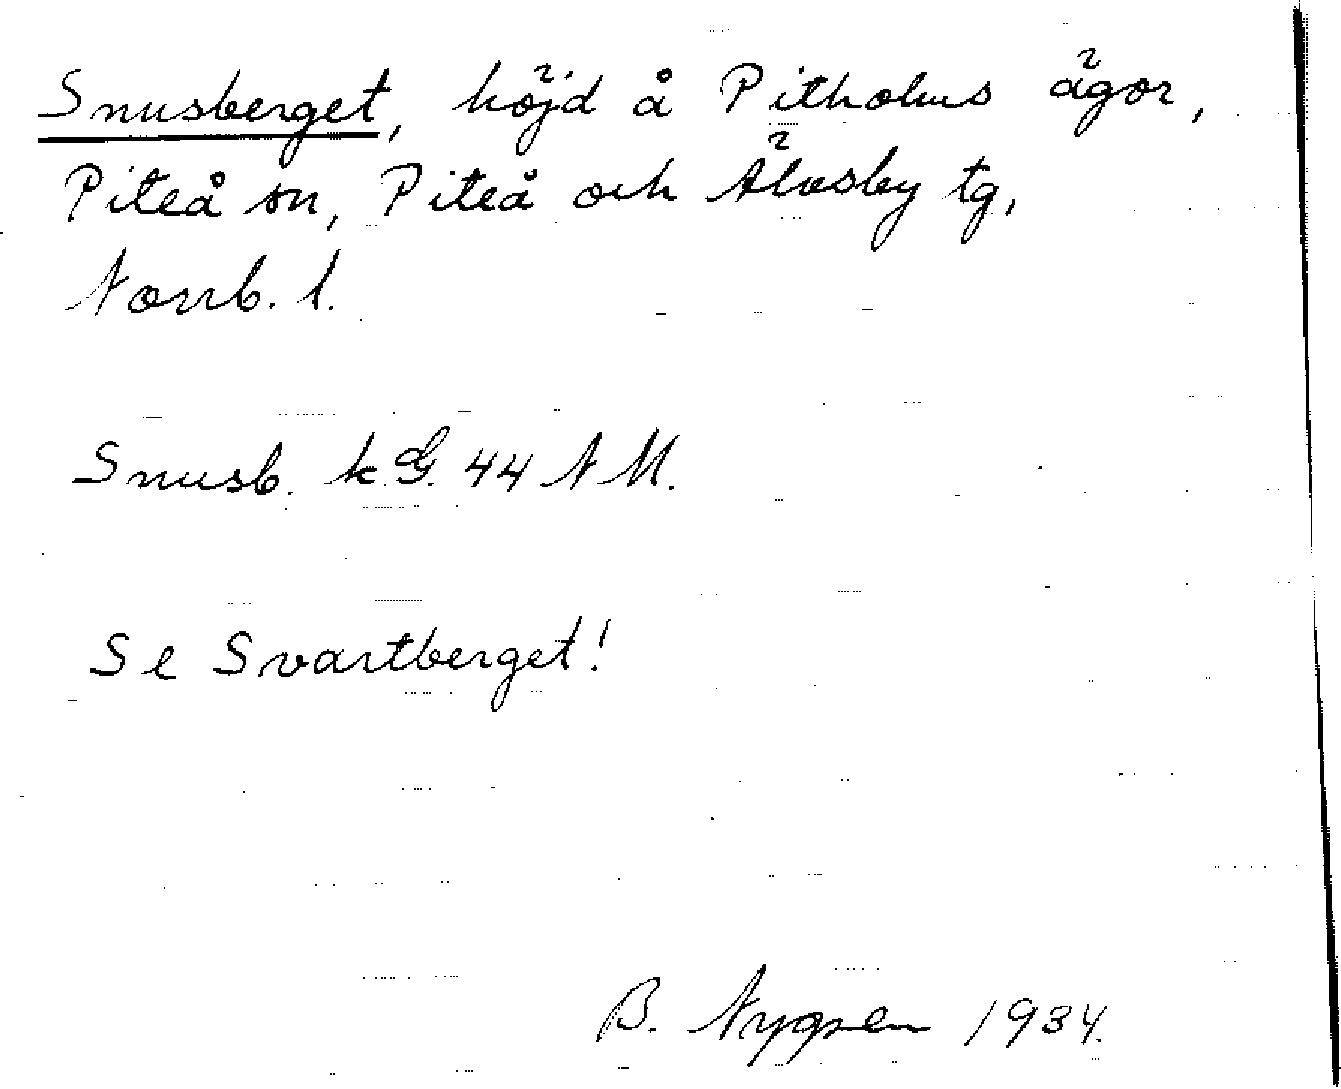 Snusberget, höjd å Pitholms ägor,
Piteå sn, Piteå och Älvsby tg,
Norrb. l.
Snusb. k.G. 44 N M.
Se Svartberget!
B. Nygren 1934.